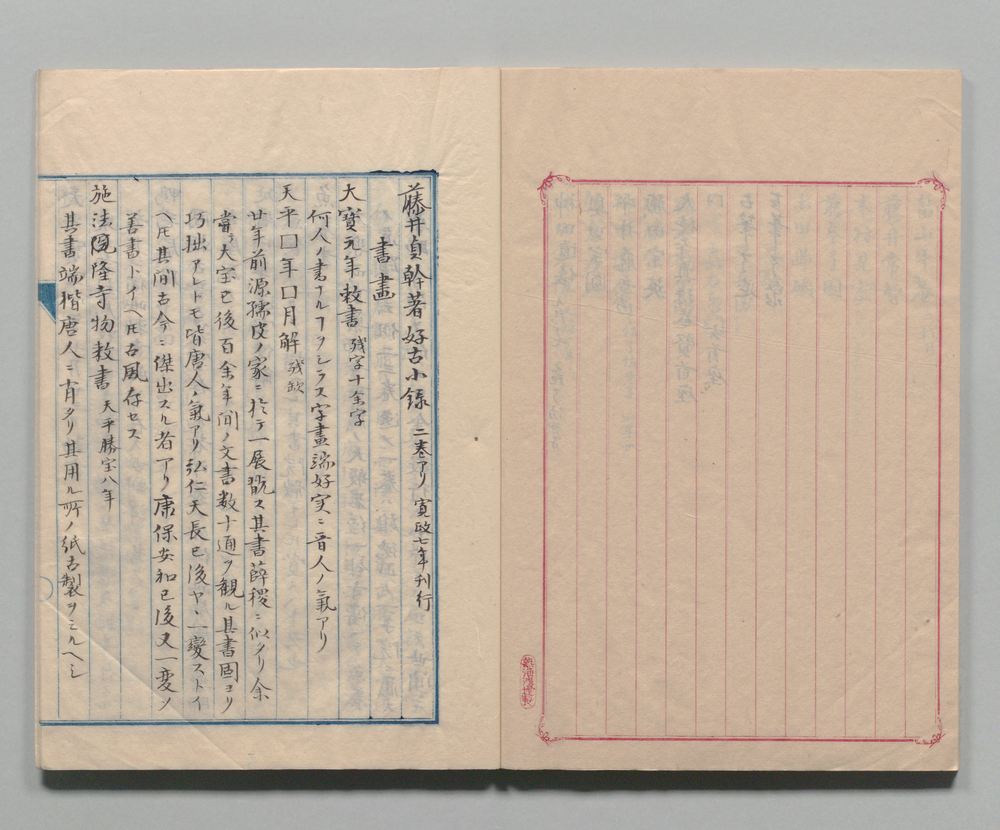 藤井貞幹著好古小録 二巻アリ 寛政七年刊行
書畫
大寶元年敕書 残字十余字
何人ノ書ナルヿヲシラス字畫端好実ニ晋人ノ氣アリ
天平口年口月解 残缺
廿年前源孺皮ノ家ニ於テ一展翫ス其書薛稷ニ似タリ余
嘗テ大宝已後百余年间ノ文書数十通ヲ観ル其書固ヨリ
巧拙アレトモ皆唐人ノ氣アリ弘仁天長已後ヤヽ一變ストイ
ヘ𪜈其间古今ニ傑出スル者アリ康保安和已後又一変ソ
善書トイヘ𪜈古風存セス
施法隆寺物敕書 天平勝宝八年
其書端楷唐人ニ肖タリ其用ル所ノ紙古製ヲミルヘシ